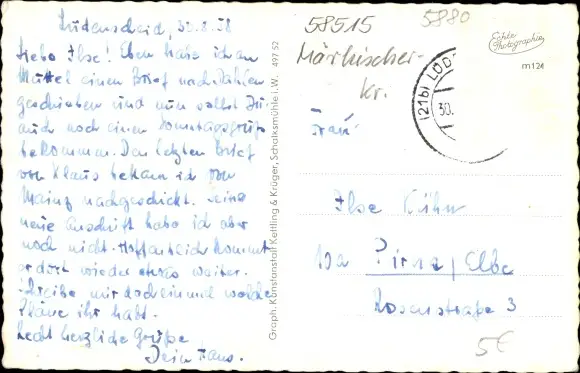 Lüdenscheid, 30.8.58
Liebe Ilse! Eben habe ich an
Muttel einen Brief nach Dahlen
geschrieben und nun sollst Du
auch noch einen Sonntagsgruß
bekommen. Den letzten Brief
von Klaus bekam ich von
Mainz nachgeschickt. Seine
neue Anschrift habe ich aber
noch nicht. Hoffentlich kommt
er dort wieder etwas weiter.
Schreibe mir doch einmal welche
Pläne ihr habt.
Recht herzliche Grüße
Dein Hans.
Graph. Kunstanstalt Kettling & Krüger, Schalksmühle i.W. 497 52
58515
Märkischer-
kr.
5880
Echte
Photographie
m 124
(21b) LÜD
30.
Frau
Ilse Kühn
Pirna / Elbe
Rosenstraße 3
5€